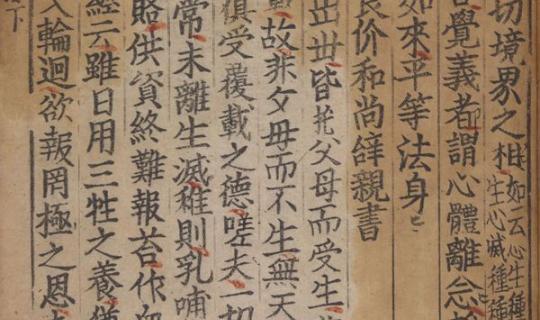 切境界之相如云心生種
生心滅種種
覺義者謂心體離念
如來平等法身
良价和尚辭親書
出丗皆托父母而受生
故非父母而不生無天
俱受覆載之德嗟夫一切
常未離生滅稚則乳哺
賂供資終難報荅作
經云雖日用三牲之養
入輪迴欲報罔極之恩
下